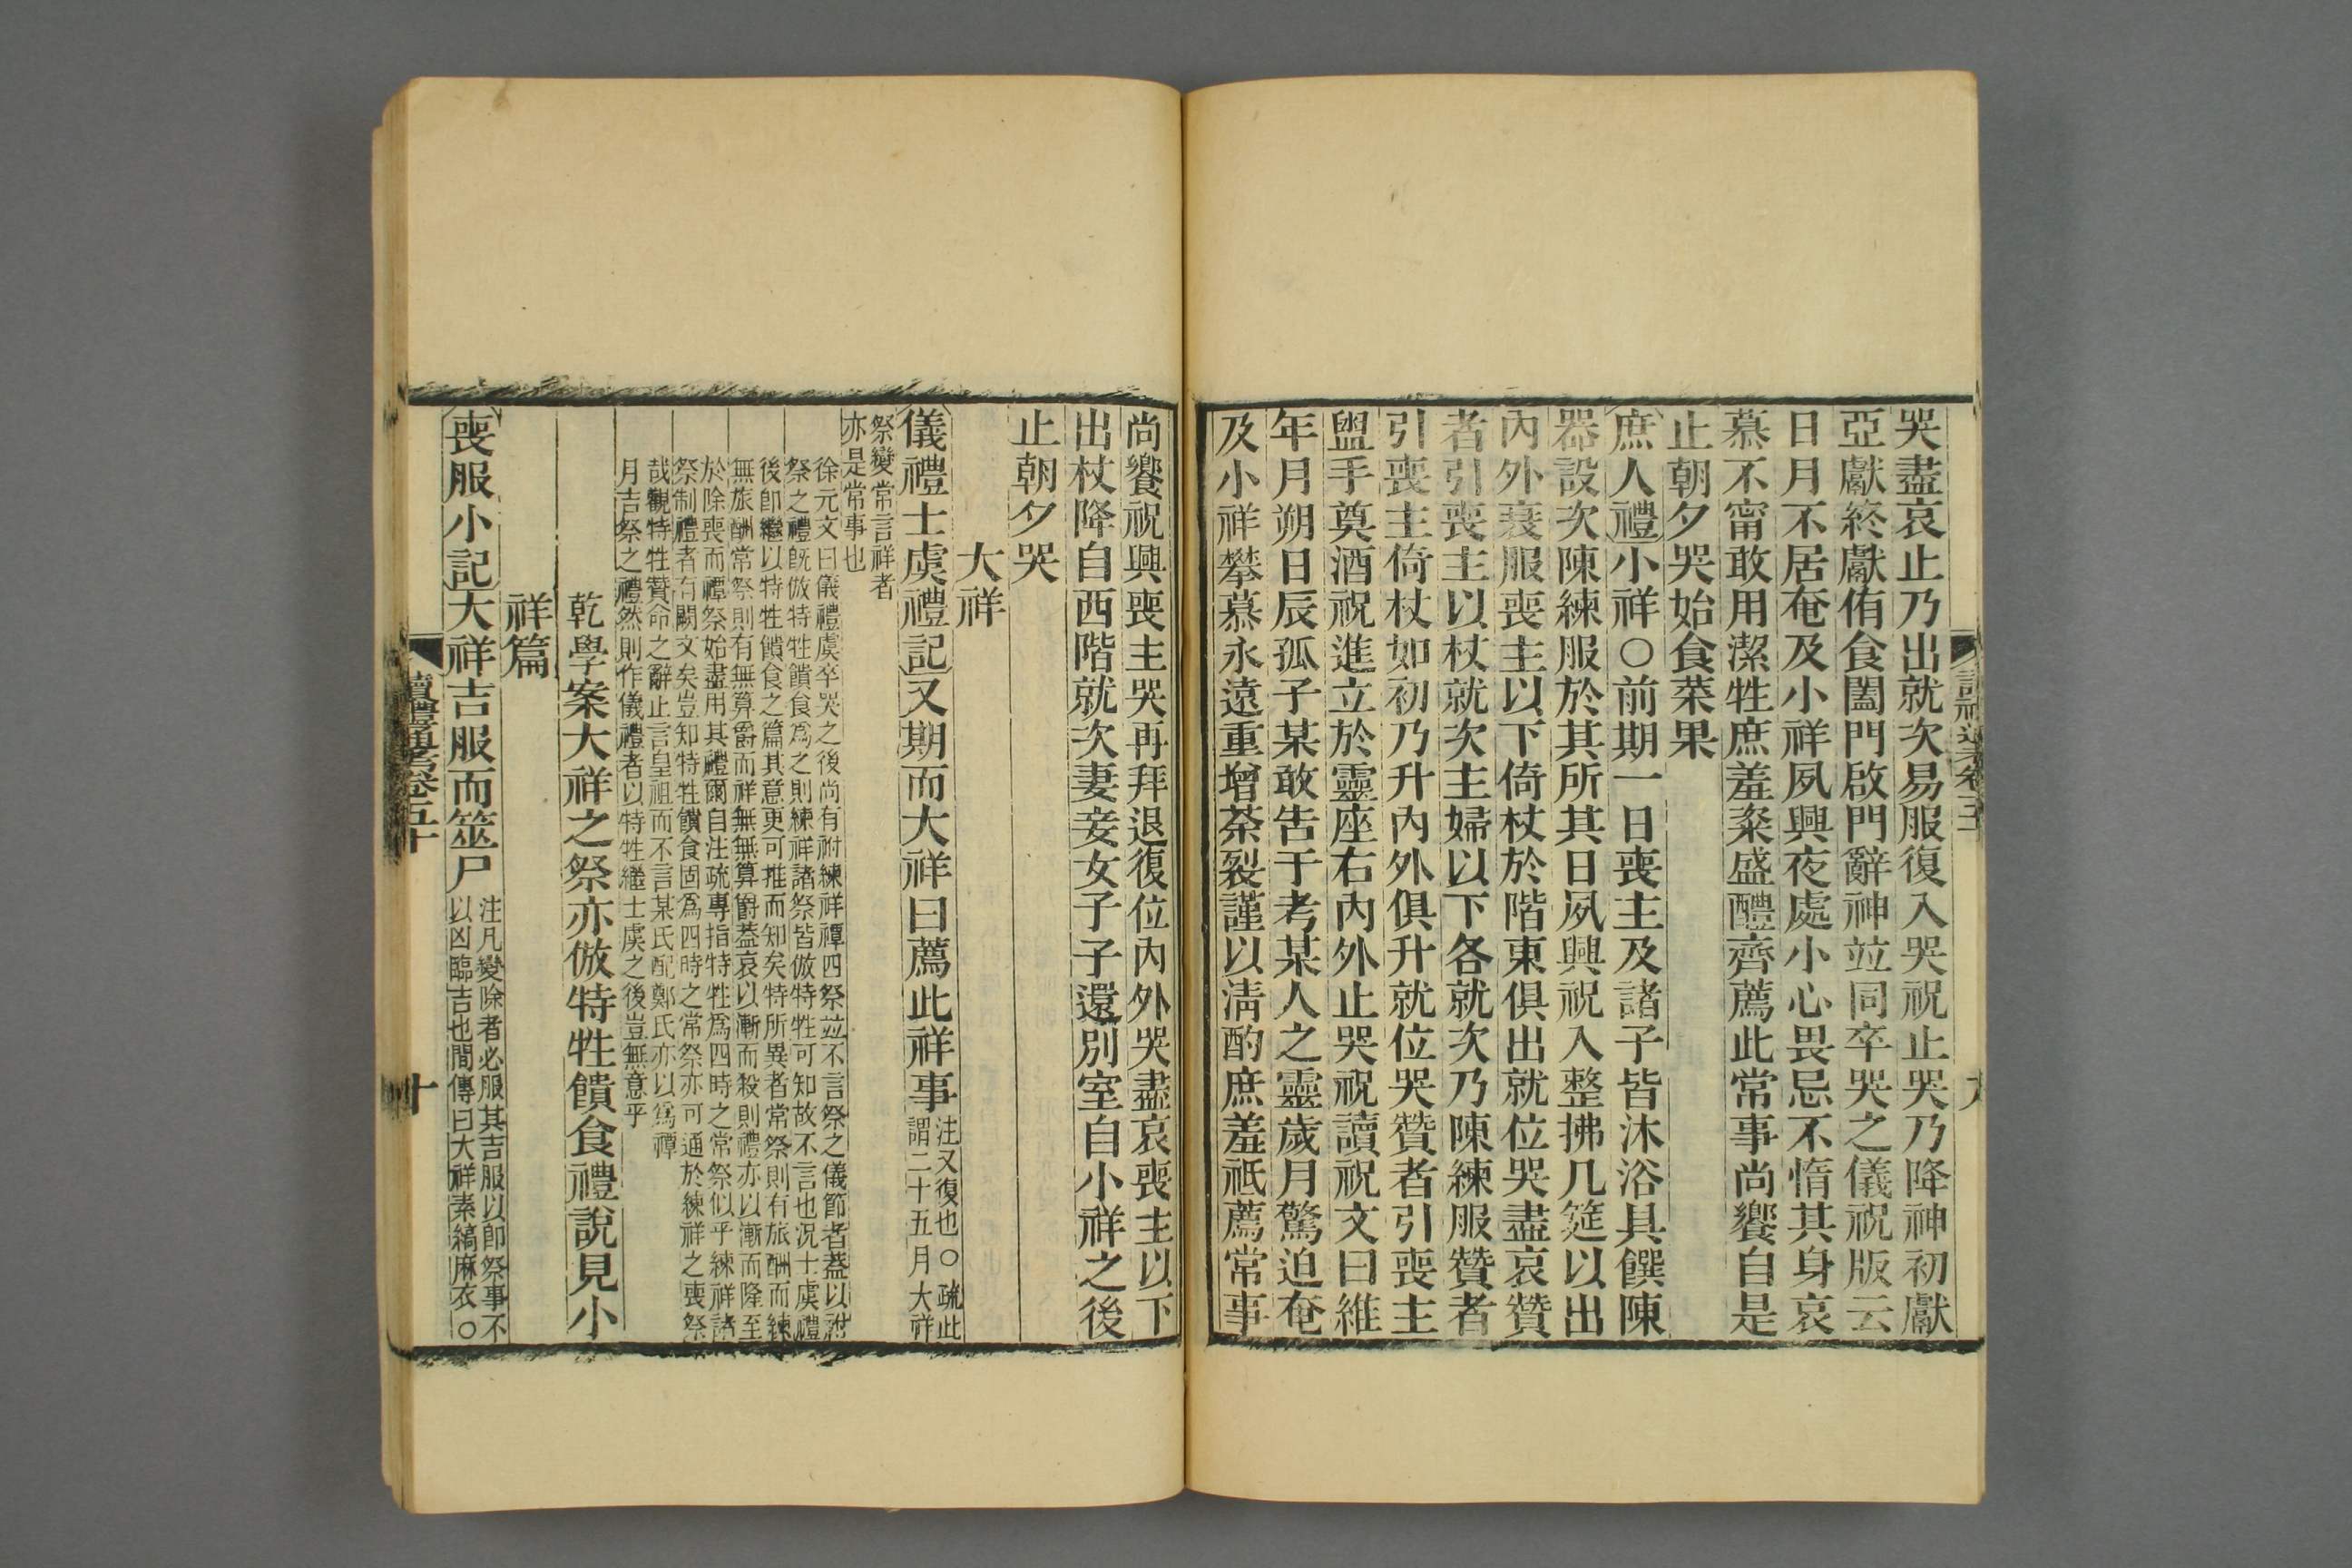 哭盡哀止乃出就次易服復入哭祝止哭乃降神初獻
亞獻終獻侑食闔門啟門辭神竝同卒哭之儀祝版云
日月不居奄及小祥夙興夜處小心畏忌不惰其身哀
慕不甯敢用潔牲庶羞粢盛醴齊薦此常事尚饗自是
止朝夕哭始食菜果
庶人禮小祥○前期一日喪主及諸子皆沐浴具饌陳
器設次陳練服於其所其日夙興祝入整拂几筵以出
內外衰服喪主以下倚杖於階東俱出就位哭盡哀贊
者引喪主以杖就次主婦以下各就次乃陳練服贊者
引喪主倚杖如初乃升內外俱升就位哭贊者引喪主
盥手奠酒祝進立於靈座右內外止哭祝讀祝文曰維
年月朔日辰孤子某敢告于考某人之靈歲月驚迫奄
及小祥攀慕永遠重增荼裂謹以清酌庶羞祗薦常事
尚饗祝興喪主哭再拜退復位內外哭盡哀喪主以下
出杖降自西階就次妻妾女子子還別室自小祥之後
止朝夕哭
大祥
儀禮士虞禮記又期而大祥曰薦此祥事
注又復也○疏此
謂二十五月大祥
祭變常言祥者
亦是常事也
徐元文曰儀禮虞卒哭之後尚有祔練祥禫四祭竝不言祭之儀節者蓋以祔
祭之禮既倣特牲饋食為之則練祥諸祭皆倣特牲可知故不言也況士虞禮
後卽繼以特牲饋食之篇其意更可推而知矣特所異者常祭則有旅酬而練
無旅酬常祭則有無算爵而祥無無算爵蓋哀以漸而殺則禮亦以漸而隆至
於除喪而禫祭始盡用其禮爾自注疏專指特牲為四時之常祭似乎練祥諸
祭制禮者有闕文矣豈知特牲饋食固為四時之常祭亦可通於練祥之喪祭
哉觀特牲贊命之辭止言皇祖而不言某氏配鄭氏亦以為禫
月吉祭之禮然則作儀禮者以特牲繼士虞之後豈無意乎
乾學案大祥之祭亦倣特牲饋食禮說見小
祥篇
喪服小記大祥吉服而筮尸
注凡變除者必服其吉服以卽祭事不
以凶臨吉也間傳曰大祥素縞麻衣○
讀禮通考卷五十
十